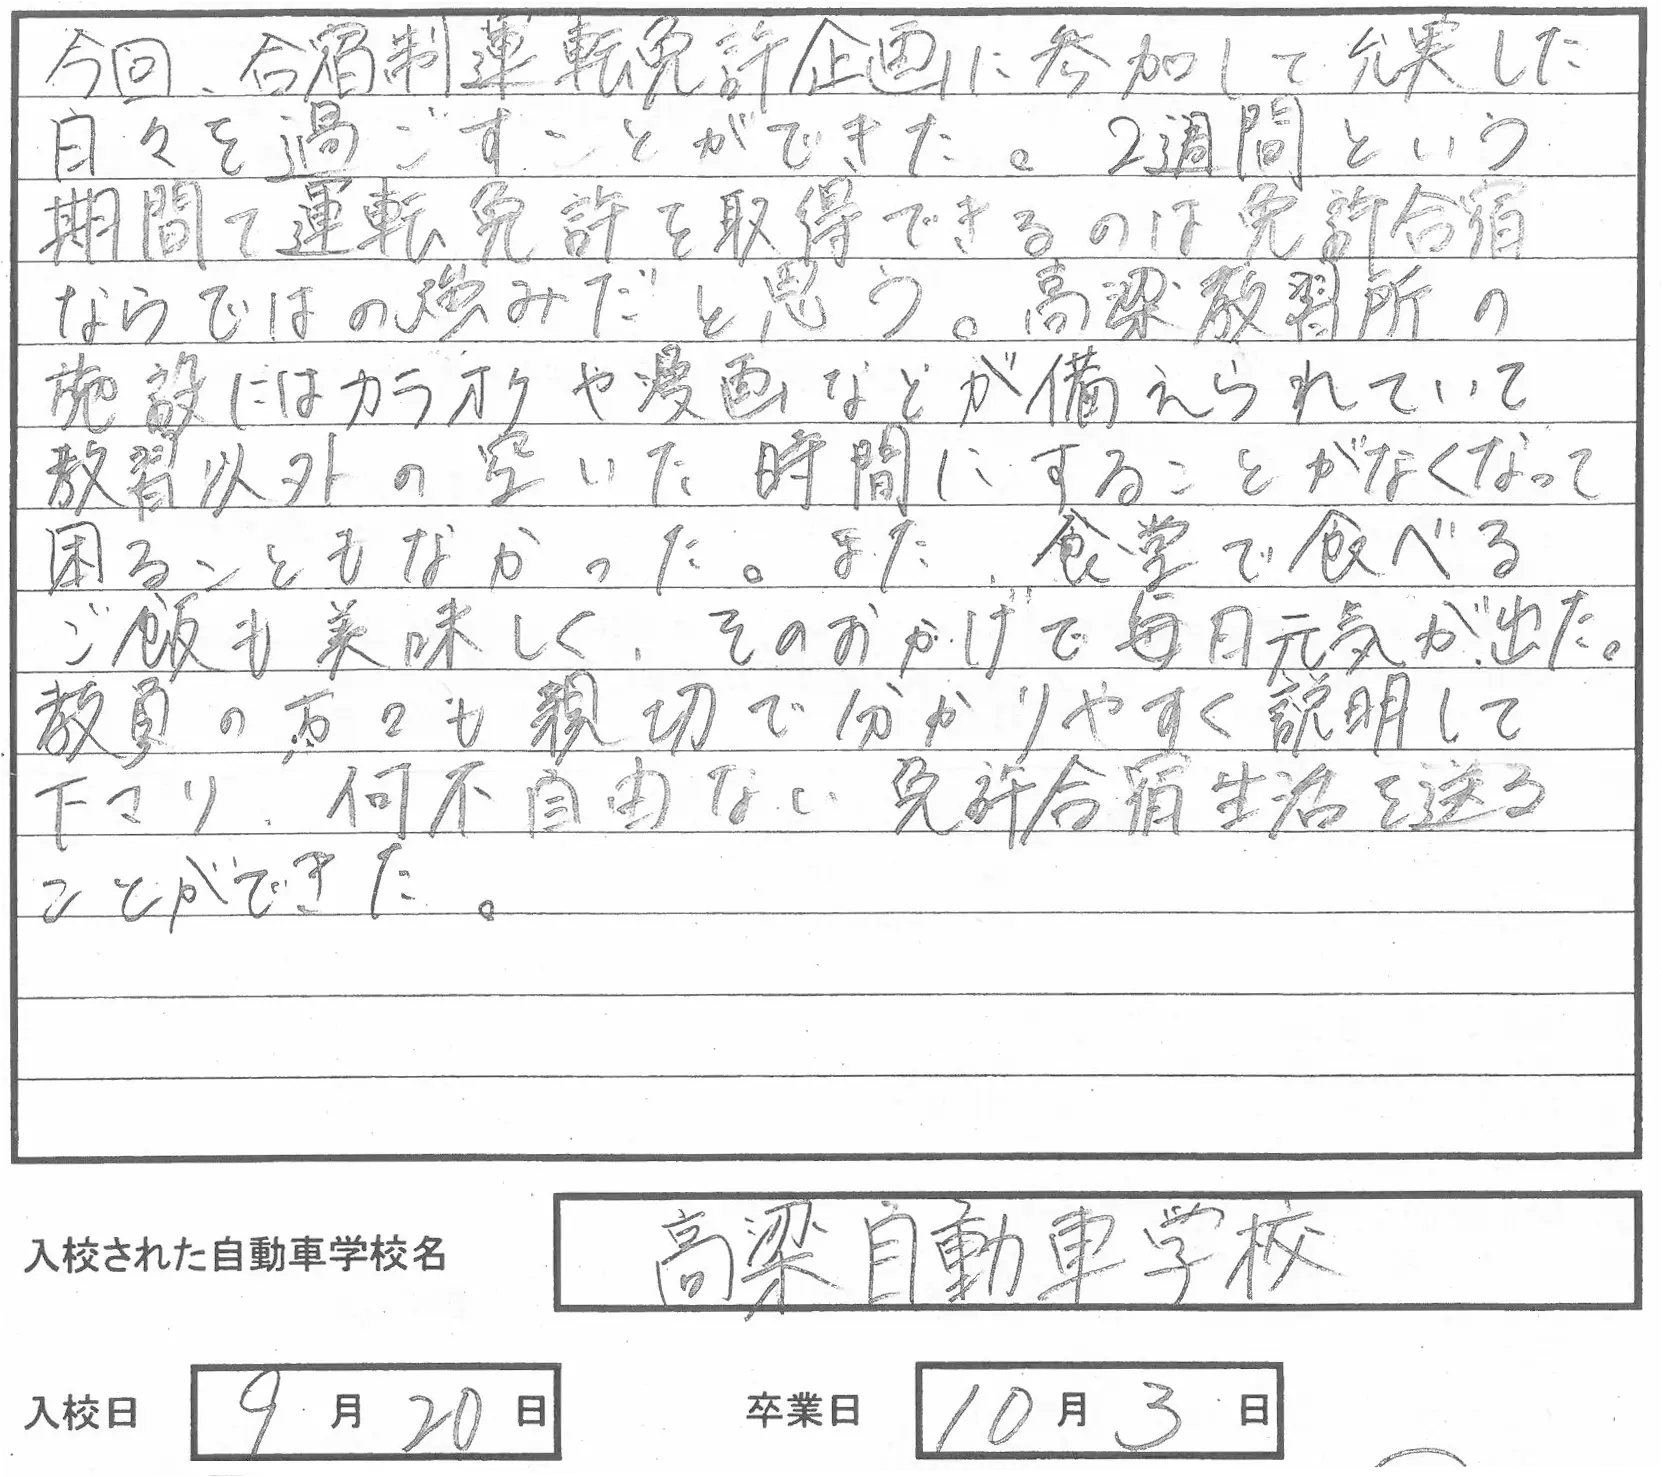 今回、合宿制運転免許企画に参加して充実した
日々を過ごすことができた。2週間という
期間で運転免許を取得できるのは免許合宿
ならではの強みだと思う。高梁教習所の
施設にはカラオケや漫画などが備えられていて
教習以外の空いた時間にすることがなくなって
困ることもなかった。また、食堂で食べる
ご飯も美味しく、そのおかげで毎日元気が出た。
教員の方々も親切で分かりやすく説明して
下さり、何不自由ない免許合宿生活を送る
ことができた。
入校された自動車学校名 高梁自動車学校
入校日 9月20日 卒業日 10月3日